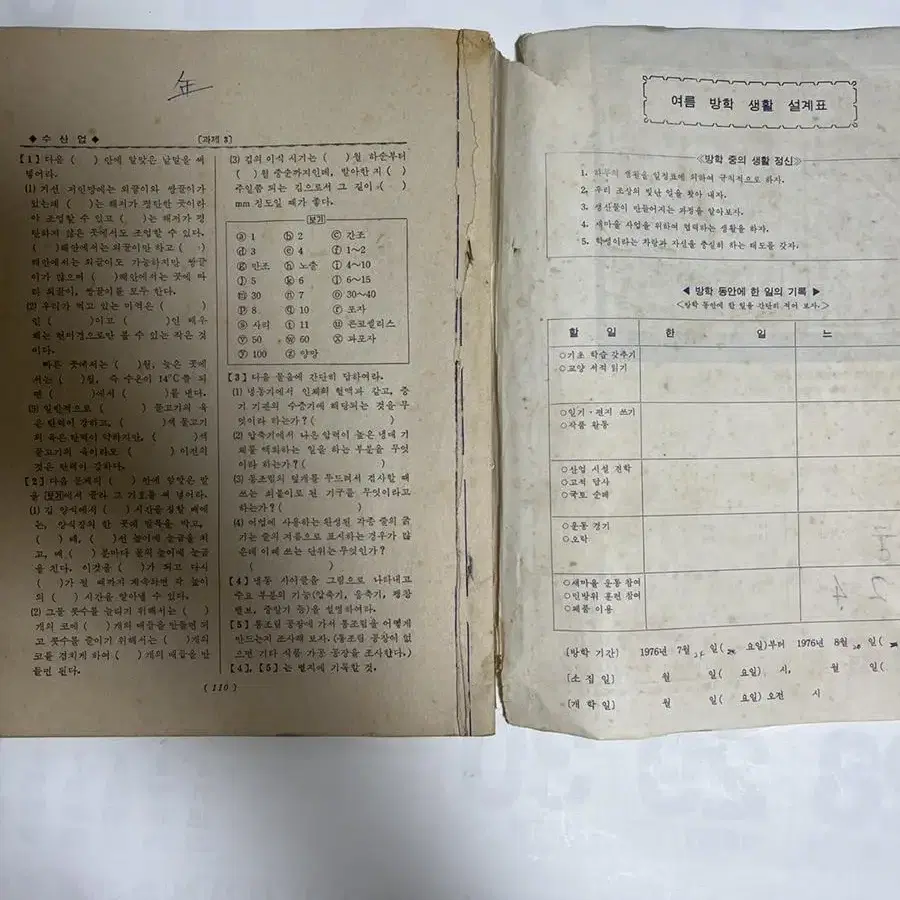 年
◆ 수 산 업 ◆
[과제 3]
【1】 다음 ( ) 안에 알맞은 낱말을 써
넣어라.
(1) 기선 저인망에는 외끌이와 쌍끌이가
있는데 ( )는 해저가 평탄한 곳이라
야 조업할 수 있고 ( )는 해저가 평
탄하지 않은 곳에서도 조업할 수 있다.
( )해안에서는 외끌이만 하고 ( )
해안에서는 외끌이도 가능하지만 쌍끌
이가 많으며 ( )해안에서는 곳에 따
라 외끌이, 쌍끌이를 모두 한다.
(2) 우리가 먹고 있는 미역은 ( )
인 ( )이고 ( )인 배우
체는 현미경으로만 볼 수 있는 작은 것
이다.
빠른 곳에서는 ( )월, 늦은 곳에
서는 ( )월, 즉 수온이 14°C쯤 되
면 ( )에서 ( )를 낸다.
(3) 일반적으로 ( ) 물고기의 육
은 탄력이 강하고, ( )색 물고기
의 육은 탄력이 약하지만, ( )색
물고기의 육이라도 ( ) 이전의
것은 탄력이 강하다.
【2】 다음 문제의 ( ) 안에 알맞은 말
을 [보기]에서 골라 그 기호를 써 넣어라.
(1) 김 양식에서 ( )시간을 잴 때에
는, 양식장의 한 곳에 말목을 박고,
( )때, ( )선 높이에 눈금을 치
고, 매 ( )분마다 물의 높이에 눈금
을 친다. 이것을 ( )가 되고 다시
( )가 될 때까지 계속하면 각 높이
의 ( )시간을 알아낼 수 있다.
(2) 그물 콧수를 늘리기 위해서는 ( )
개의 코에 ( )개의 매듭을 만들면 되
고 콧수를 줄이기 위해서는 ( )개의
코를 겹치게 하여 ( )개의 매듭을 만
들면 된다.
(3) 김의 이식 시기는 ( )월 하순부터
( )월 중순까지인데, 발아한 지 ( )
주일쯤 되는 김으로서 그 길이 ( )
mm 정도일 때가 좋다.
[보기]
ⓐ 1 ⓑ 2 ⓒ 간조
ⓓ 3 ⓔ 4 ⓕ 1~2
ⓖ 만조 ⓗ 노출 ⓘ 4~10
ⓙ 5 ⓚ 6 ⓛ 6~15
ⓜ 30 ⓝ 7 ⓞ 30~40
ⓟ 8 ⓠ 10 ⓡ 포자
ⓢ 사리 ⓣ 11 ⓤ 콘코셀리스
ⓥ 50 ⓦ 60 ⓧ 과포자
ⓨ 100 ⓩ 양망
【3】 다음 물음에 간단히 답하여라.
(1) 냉동기에서 인체의 혈액과 같고, 증
기 기관의 수증기에 해당되는 것을 무
엇이라 하는가? ( )
(2) 압축기에서 나온 압력이 높은 냉매 기
체를 액화하는 일을 하는 부분을 무엇
이라 하는가? ( )
(3) 통조림의 얼개를 두드려서 검사할 때
쓰는 쇠붙이로 된 기구를 무엇이라고
하는가? ( )
(4) 어업에 사용하는 완성된 각종 줄의 굵
기는 줄의 지름으로 표시하는 경우가 많
은데 이 때 쓰는 단위는 무엇인가?
( )
【4】 냉동 사이클을 그림으로 나타내고
주요 부분의 기능(압축기, 응축기, 팽창
밸브, 증발기 등)을 설명하여라.
【5】 통조림 공장에 가서 통조림을 어떻게
만드는지 조사해 보자. (통조림 공장이 없
으면 기타 식품 가공 공장을 조사한다.)
【4】,【5】는 별지에 기록할 것.
( 110 )
여름 방학 생활 설계표
≪방학 중의 생활 정신≫
1. 하루의 생활을 일정표에 의하여 규칙적으로 하자.
2. 우리 조상의 빛난 얼을 찾아 내자.
3. 생산물이 만들어지는 과정을 알아보자.
4. 새마을 사업을 위하여 협력하는 생활을 하자.
5. 학생이라는 자랑과 자신을 충실히 하는 태도를 갖자.
◀ 방학 동안에 한 일의 기록 ▶
<방학 동안에 한 일을 간단히 적어 보자.>
할 일 한 일 느
○기초 학습 갖추기
○교양 서적 읽기
○일기·편지 쓰기
○작품 활동
○산업 시설 견학
○고적 답사
○국토 순례
○운동 경기
○오락
○새마을 운동 참여
○민방위 훈련 참여
○제품 이용
[방학 기간] 1976년 7월 일( 요일)부터 1976년 8월 일(
[소 집 일] 월 일( 요일) 시, 월 일(
[개 학 일] 월 일( 요일) 오전 시